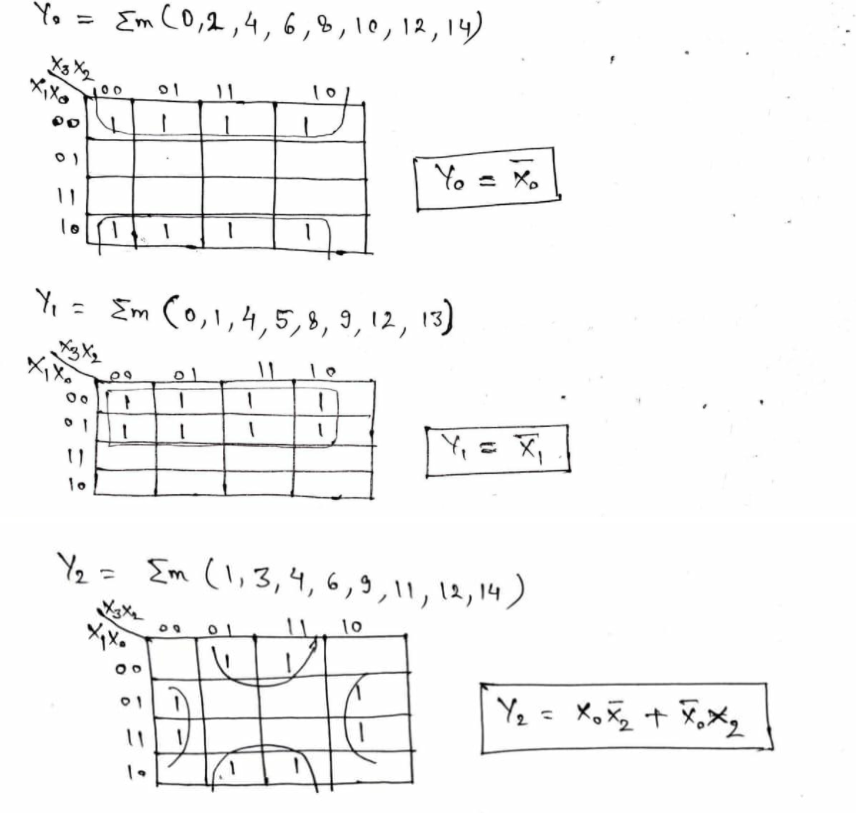 Y₀ = Σm (0,2,4,6,8,10,12,14)
X₃X₂
X₁X₀ 00 01 11 10
00 1 1 1 1
01
11
10 1 1 1 1
Y₀ = X̄₀
Y₁ = Σm (0,1,4,5,8,9,12,13)
X₃X₂
X₁X₀ 00 01 11 10
00 1 1 1 1
01 1 1 1 1
11
10
Y₁ = X̄₁
Y₂ = Σm (1,3,4,6,9,11,12,14)
X₃X₂
X₁X₀ 00 01 11 10
00 1 1
01 1 1
11 1 1
10 1 1
Y₂ = X₀X̄₂ + X̄₀X₂